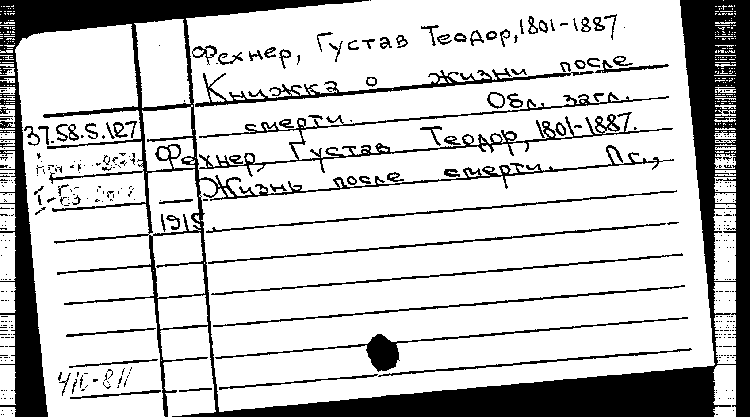 Фехнер, Густав Теодор, 1801-1887.
Книжка о жизни после
смерти. Обл. загл.
37.58.5.127
Фехнер, Густав Теодор, 1801-1887.
Жизнь после смерти. Пг.,
1915.